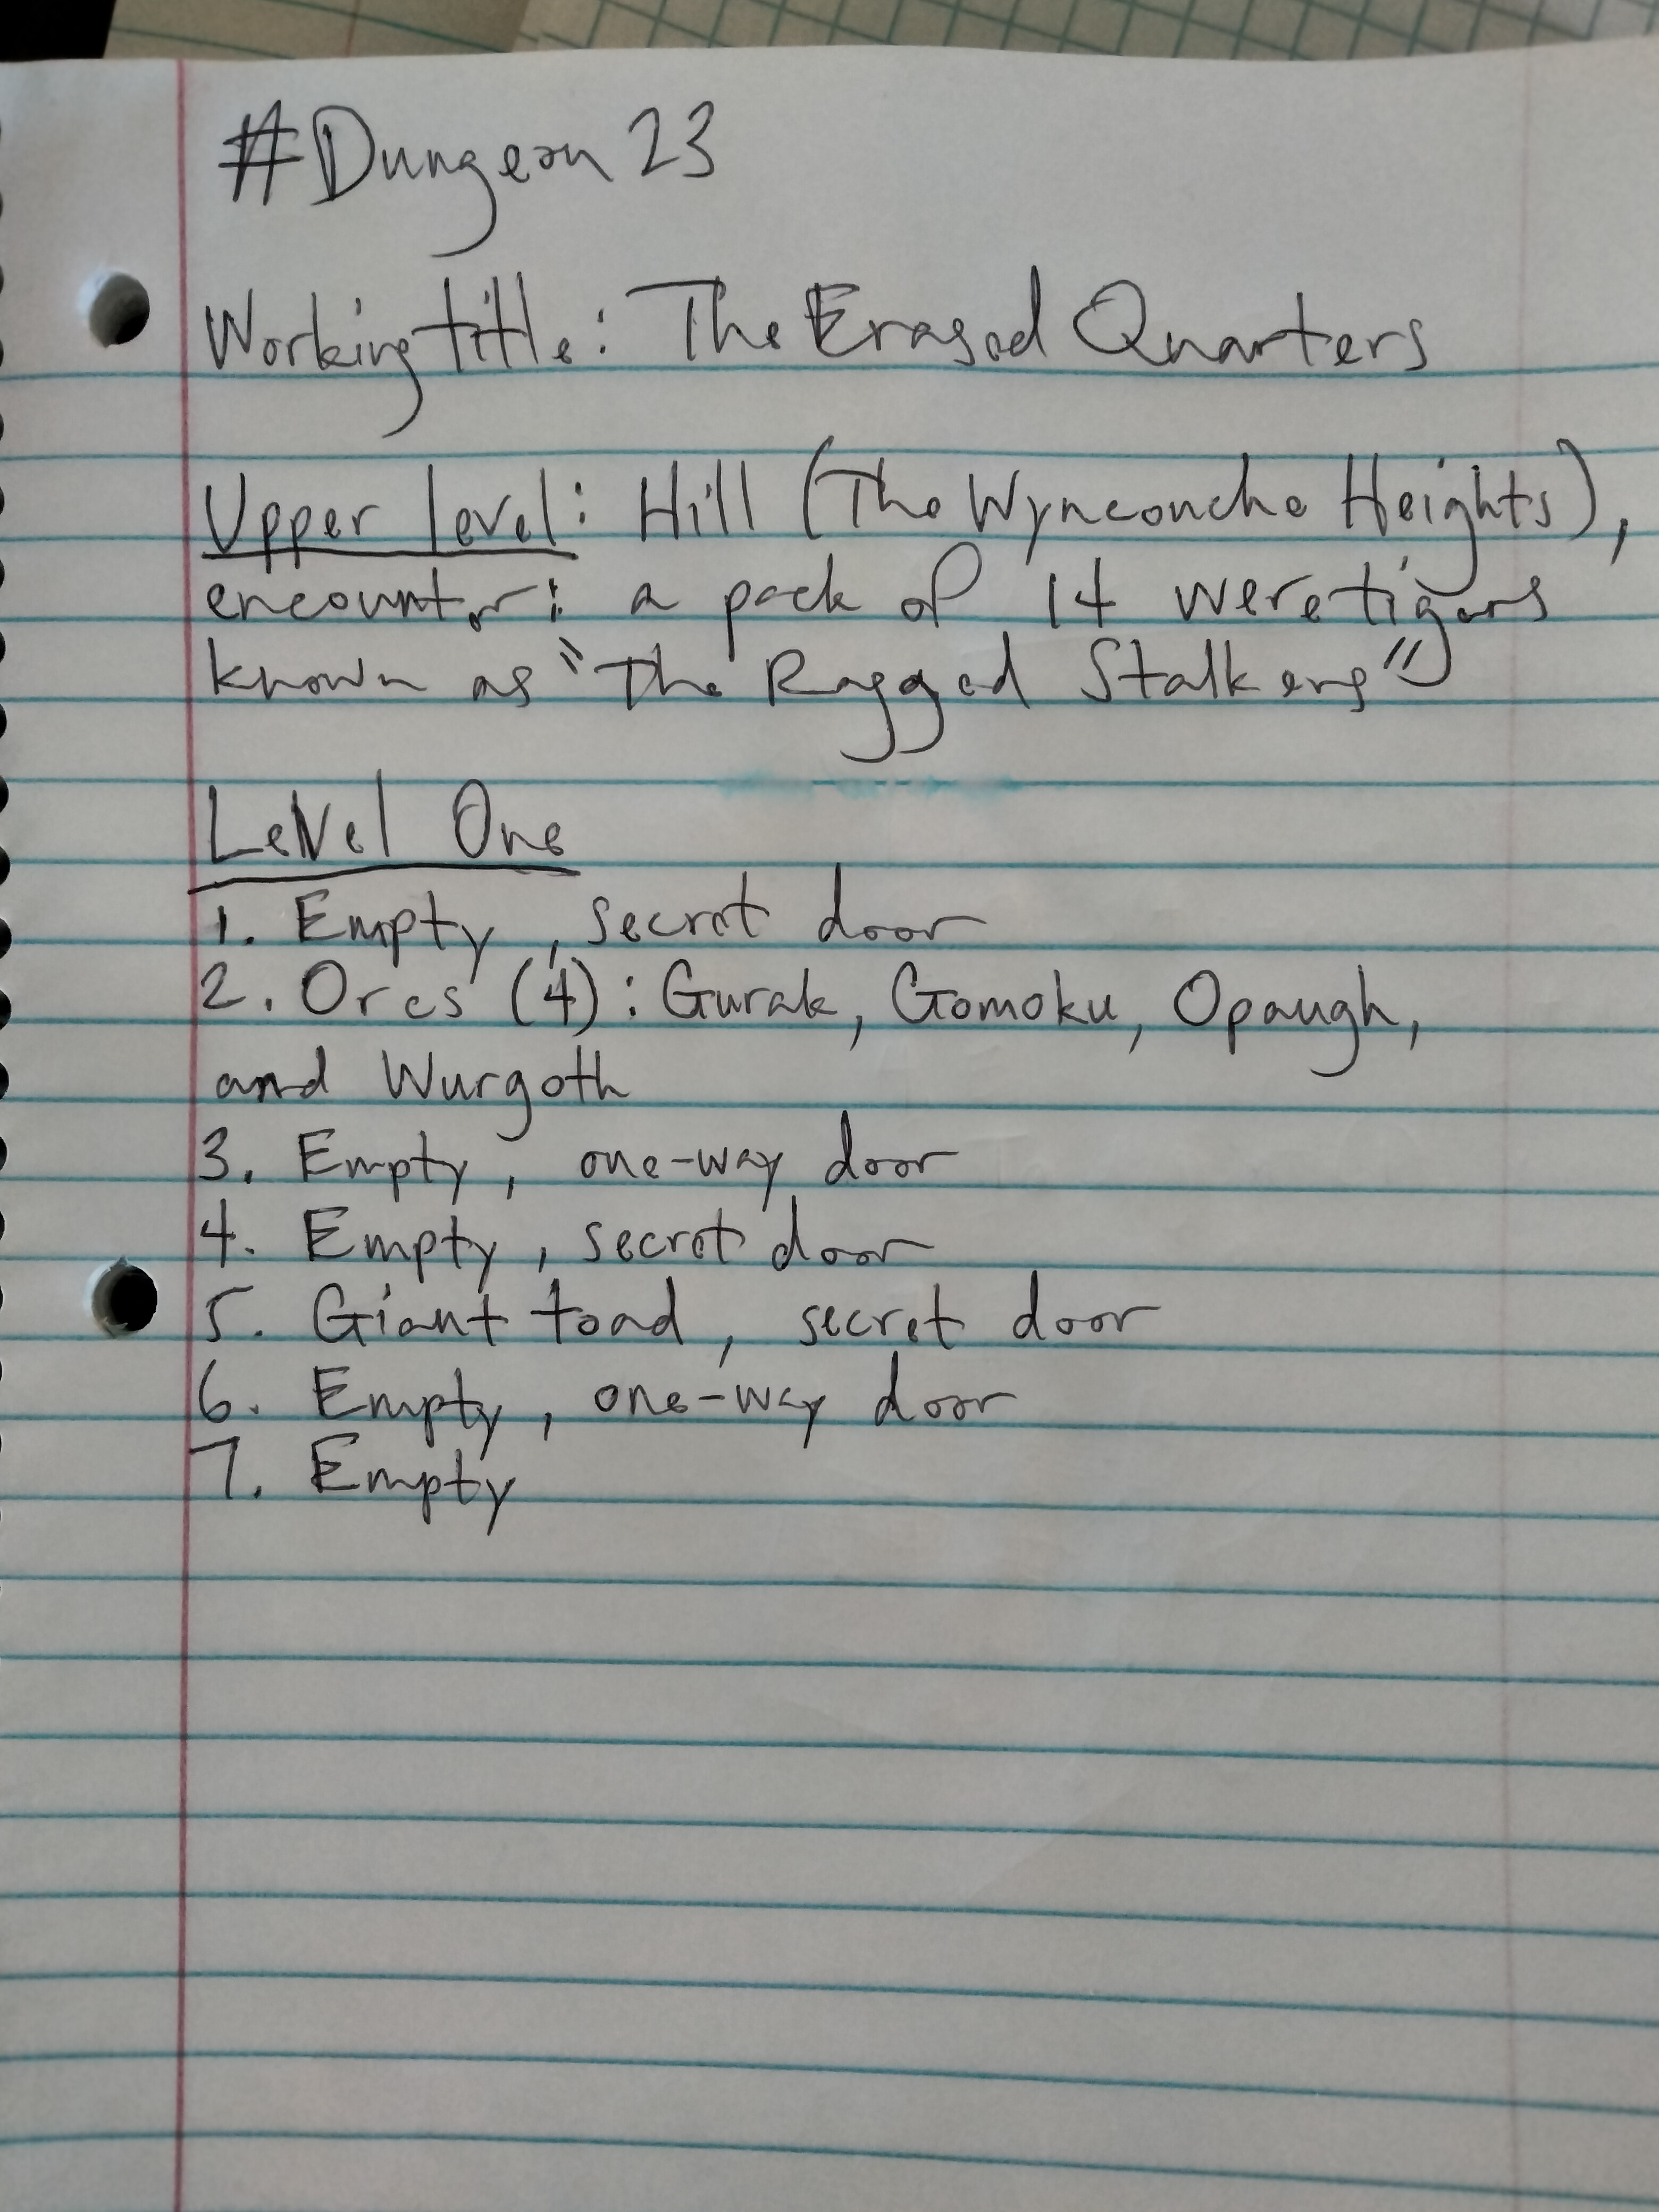 #Dungeon23
Working title: The Erased Quarters
Upper level: Hill (The Wynconche Heights),
encounter: a pack of 14 weretigers
known as "The Ragged Stalkers"
Level One
1. Empty, secret door
2. Orcs (4): Gurak, Gomoku, Opaugh,
and Wurgoth
3. Empty, one-way door
4. Empty, secret door
5. Giant toad, secret door
6. Empty, one-way door
7. Empty